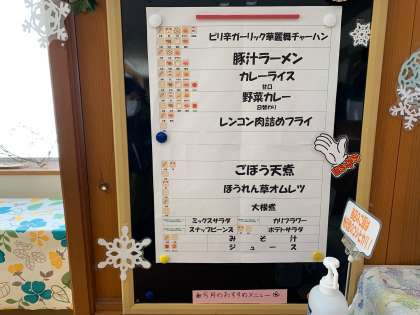 ピリ辛ガーリック華麗舞チャーハン
豚汁ラーメン
カレーライス
甘口
野菜カレー
日替わり
レンコン肉詰めフライ
ごぼう天煮
ほうれん草オムレツ
大根煮
ミックスサラダ カリフラワー
スナップビーンズ ポテトサラダ
みそ汁
ジュース
月のおすすめメニュー